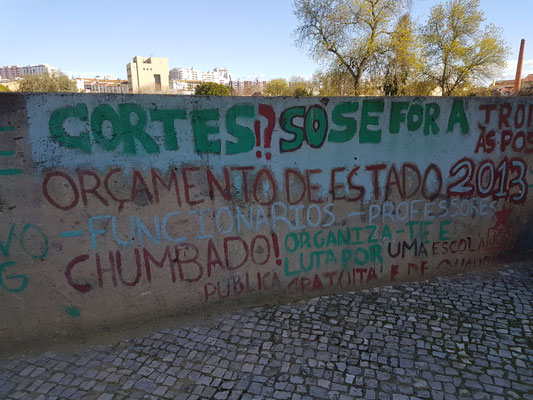 CORTES!? SÓ SE FÔR A TROI
ÀS POS
ORÇAMENTO DE ESTADO 2013
-FUNCIONÁRIOS - PROFESSORES
CHUMBADO!
ORGANIZA-TE E
LUTA POR UMA ESCOLA
PÚBLICA GRATUITA E DE
VO
G